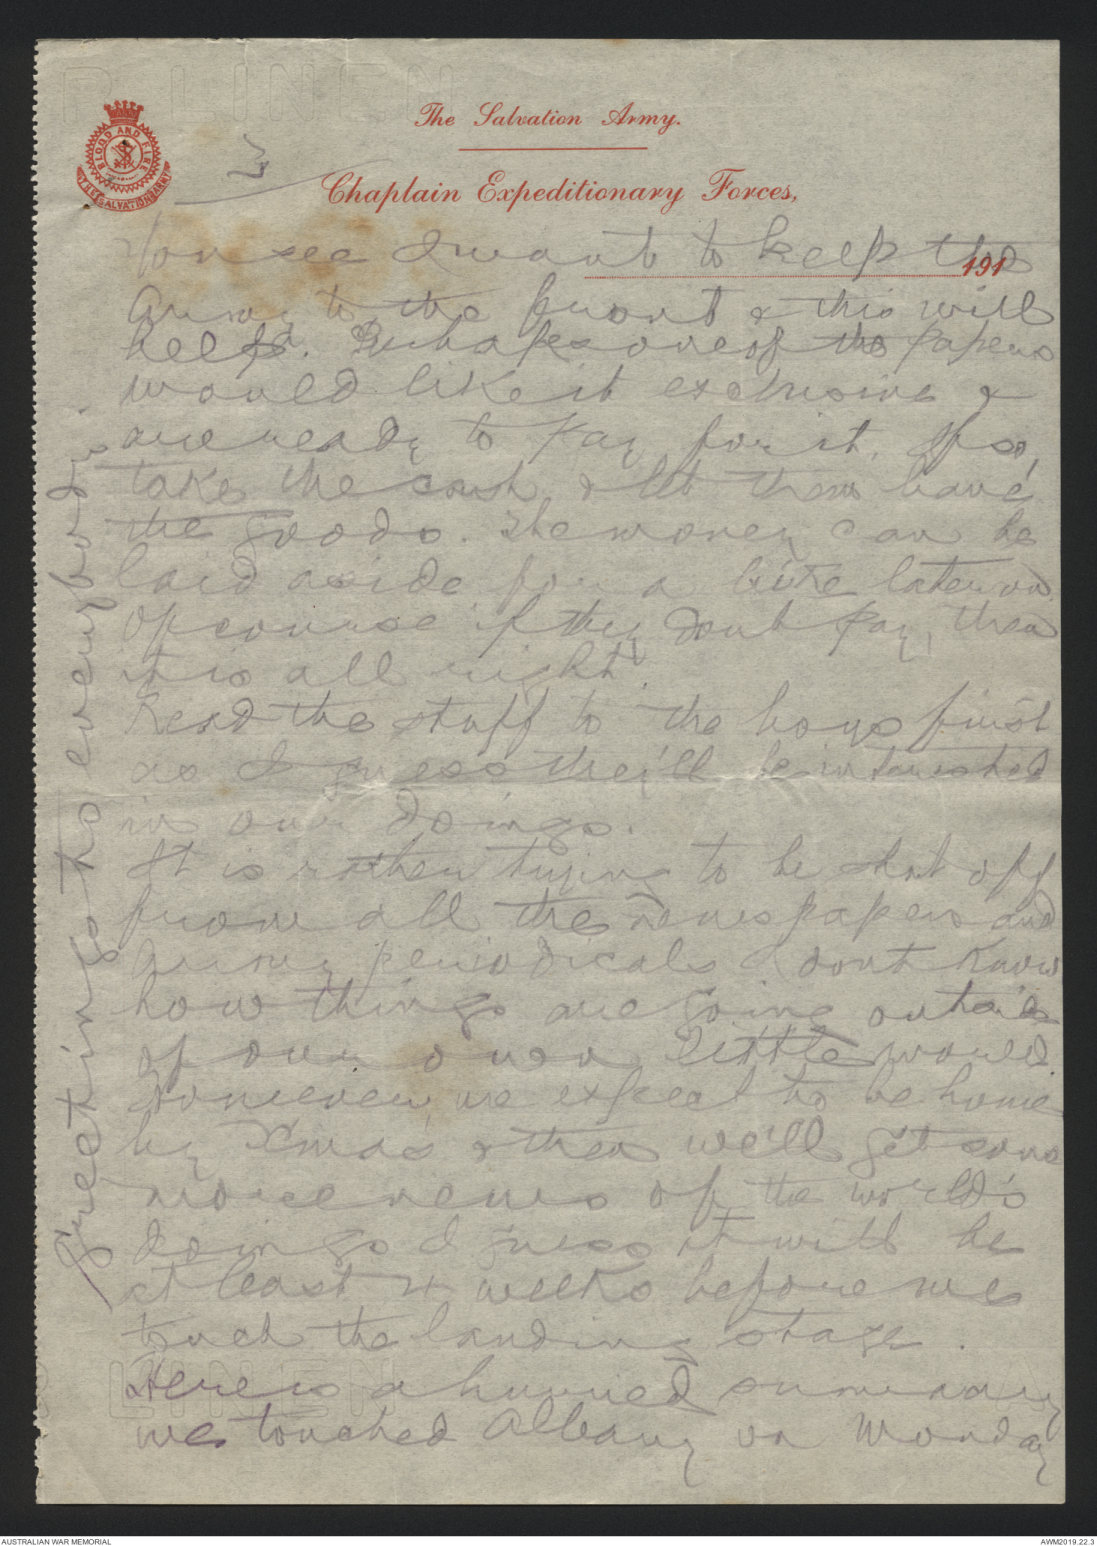 The Salvation Army.
BLOOD AND FIRE
THE SALVATION ARMY
3
Chaplain Expeditionary Forces,
191
You see I want to keep the
Army to the front & this will
help. Perhaps one of the papers
would like it exclusive &
are ready to pay for it. If so,
take the cash & let them have
the goods. The money can be
laid aside for a bike later on.
Of course if they dont pay, then
it is all right.
Read the stuff to the boys first
as I guess they'll be interested
in our doings.
It is rather trying to be shut off
from all the newspapers and
Army periodicals I dont know
how things are going outside
of our own little world.
However we expect to be home
by Xmas & then we'll get some
more news of the world's
doings I guess it will be
at least 4 weeks before we
touch the landing stage.
Here is a hurried summary
we touched Albany on Monday
Greetings to everybody.
AUSTRALIAN WAR MEMORIAL
AWM2019.22.3